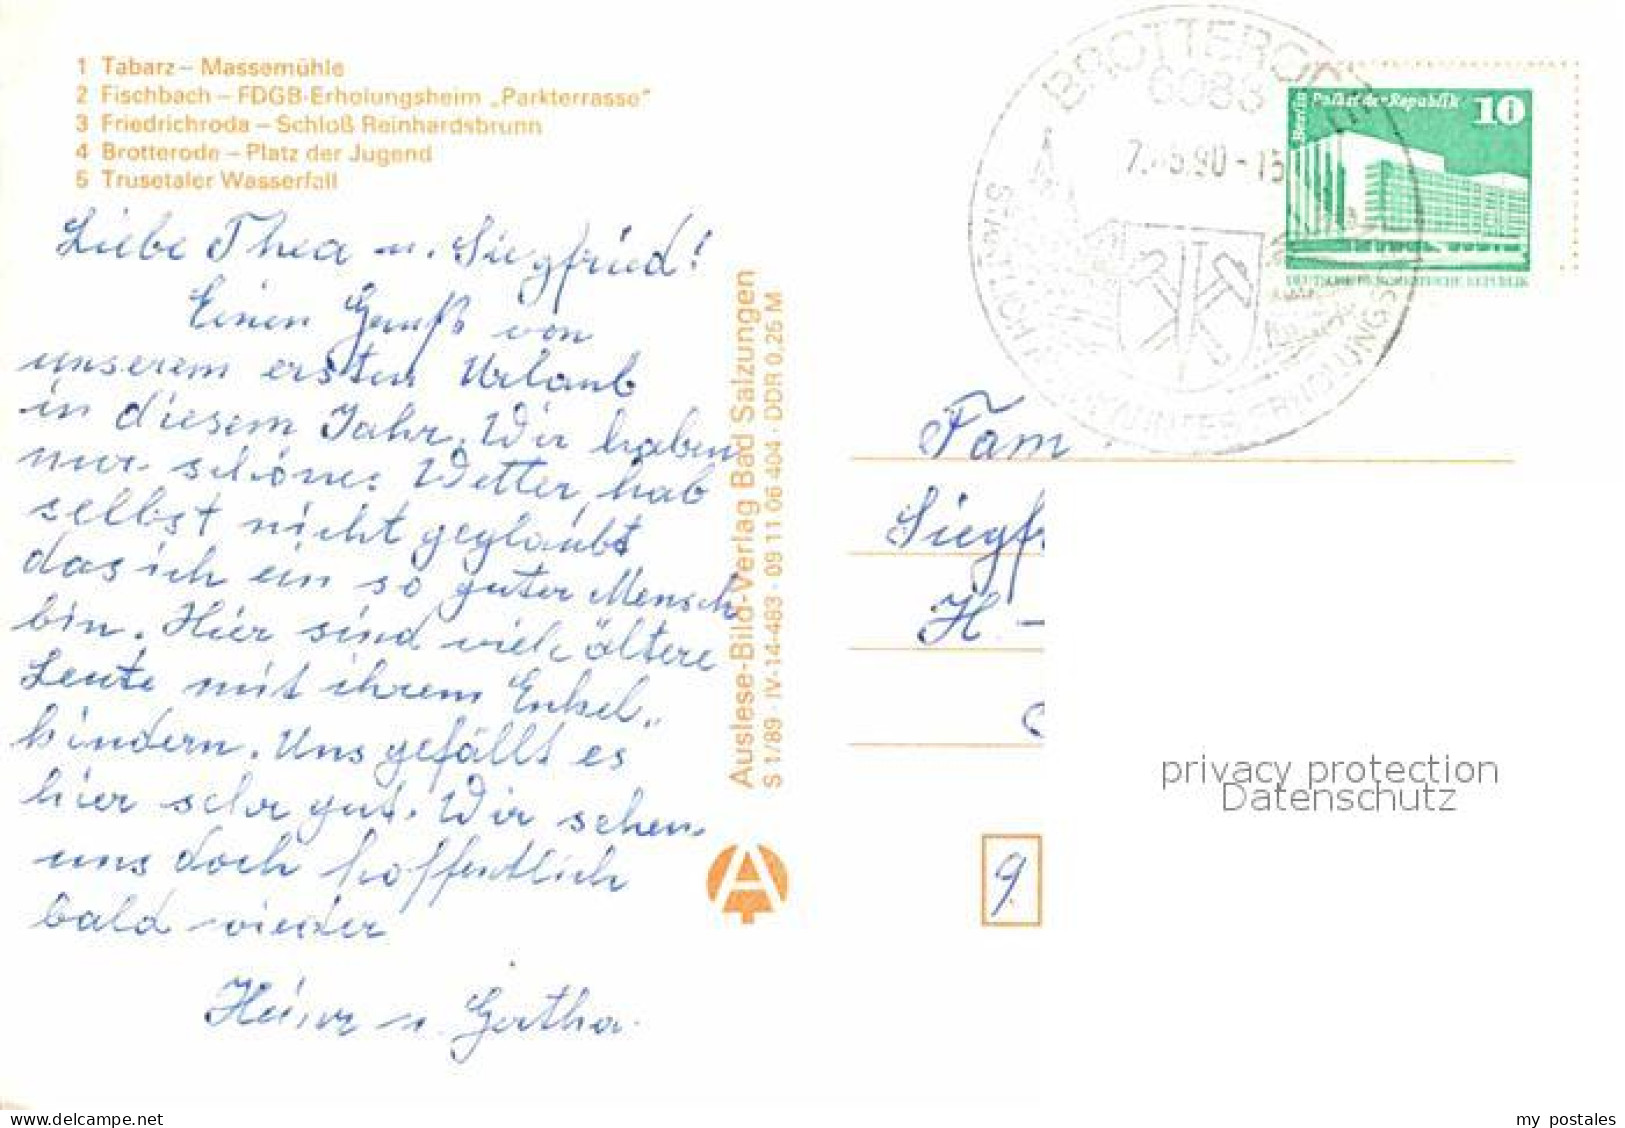 1 Tabarz – Massemühle
2 Fischbach – FDGB-Erholungsheim „Parkterrasse“
3 Friedrichroda – Schloß Reinhardsbrunn
4 Brotterode – Platz der Jugend
5 Trusetaler Wasserfall
Liebe Thea u. Siegfried!
Einen Gruß von
unserem ersten Urlaub
in diesem Jahr. Wir haben
nur schönes Wetter, hab
selbst nicht geglaubt
das ich ein so guter Mensch
bin. Hier sind viele ältere
Leute mit ihrem Enkel„
kindern. Uns gefällt es
hier sehr gut. Wir sehen
uns doch hoffentlich
bald wieder
Heinz u. Gertha.
Auslese-Bild-Verlag Bad Salzungen
S 1/89 · IV-14-483 · 09 11 06 404 · DDR 0,25 M
BROTTERODE
6083
90-15
Berlin Palast der Republik 10
DEUTSCHE DEMOKRATISCHE REPUBLIK
Fam
Siegf
H. –
9.
privacy protection
Datenschutz
www.delcampe.net
my_postales